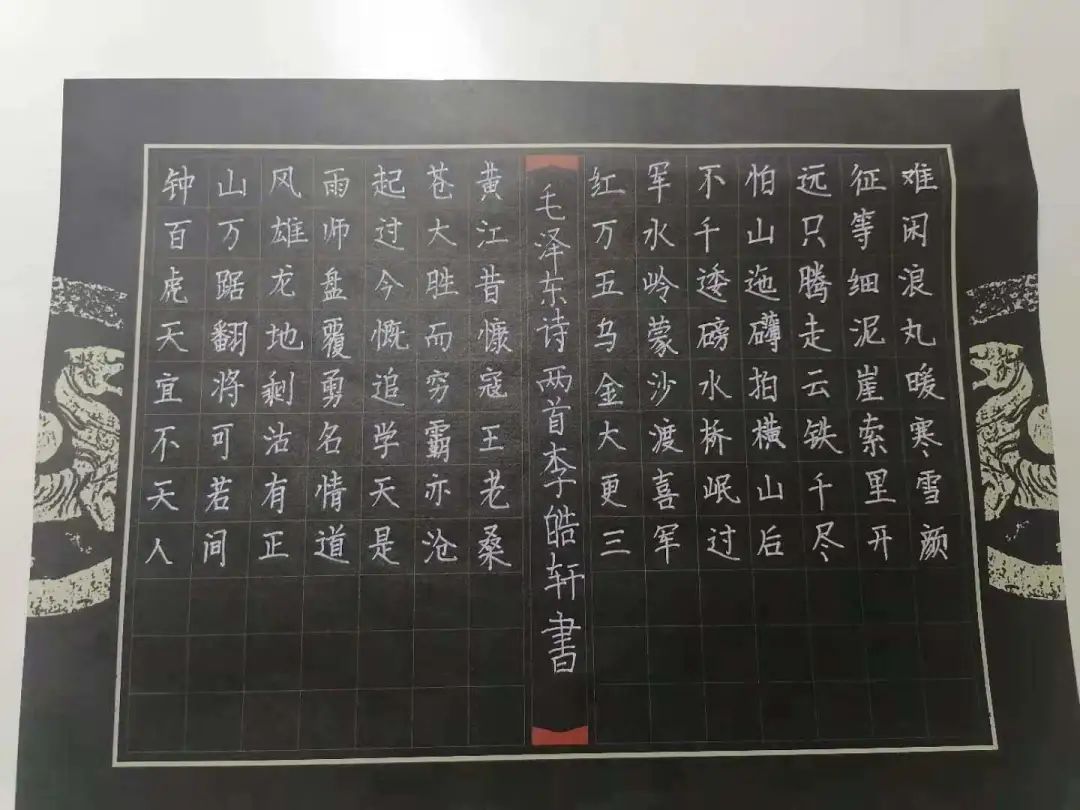 钟山风雨起苍黄
百万雄师过大江
虎踞龙盘今胜昔
天翻地覆慨而慷
宜将剩勇追穷寇
不可沽名学霸王
天若有情天亦老
人间正道是沧桑
毛泽东诗两首李皓轩書
红军不怕远征难
万水千山只等闲
五岭逶迤腾细浪
乌蒙磅礴走泥丸
金沙水拍云崖暖
大渡桥横铁索寒
更喜岷山千里雪
三军过后尽开颜